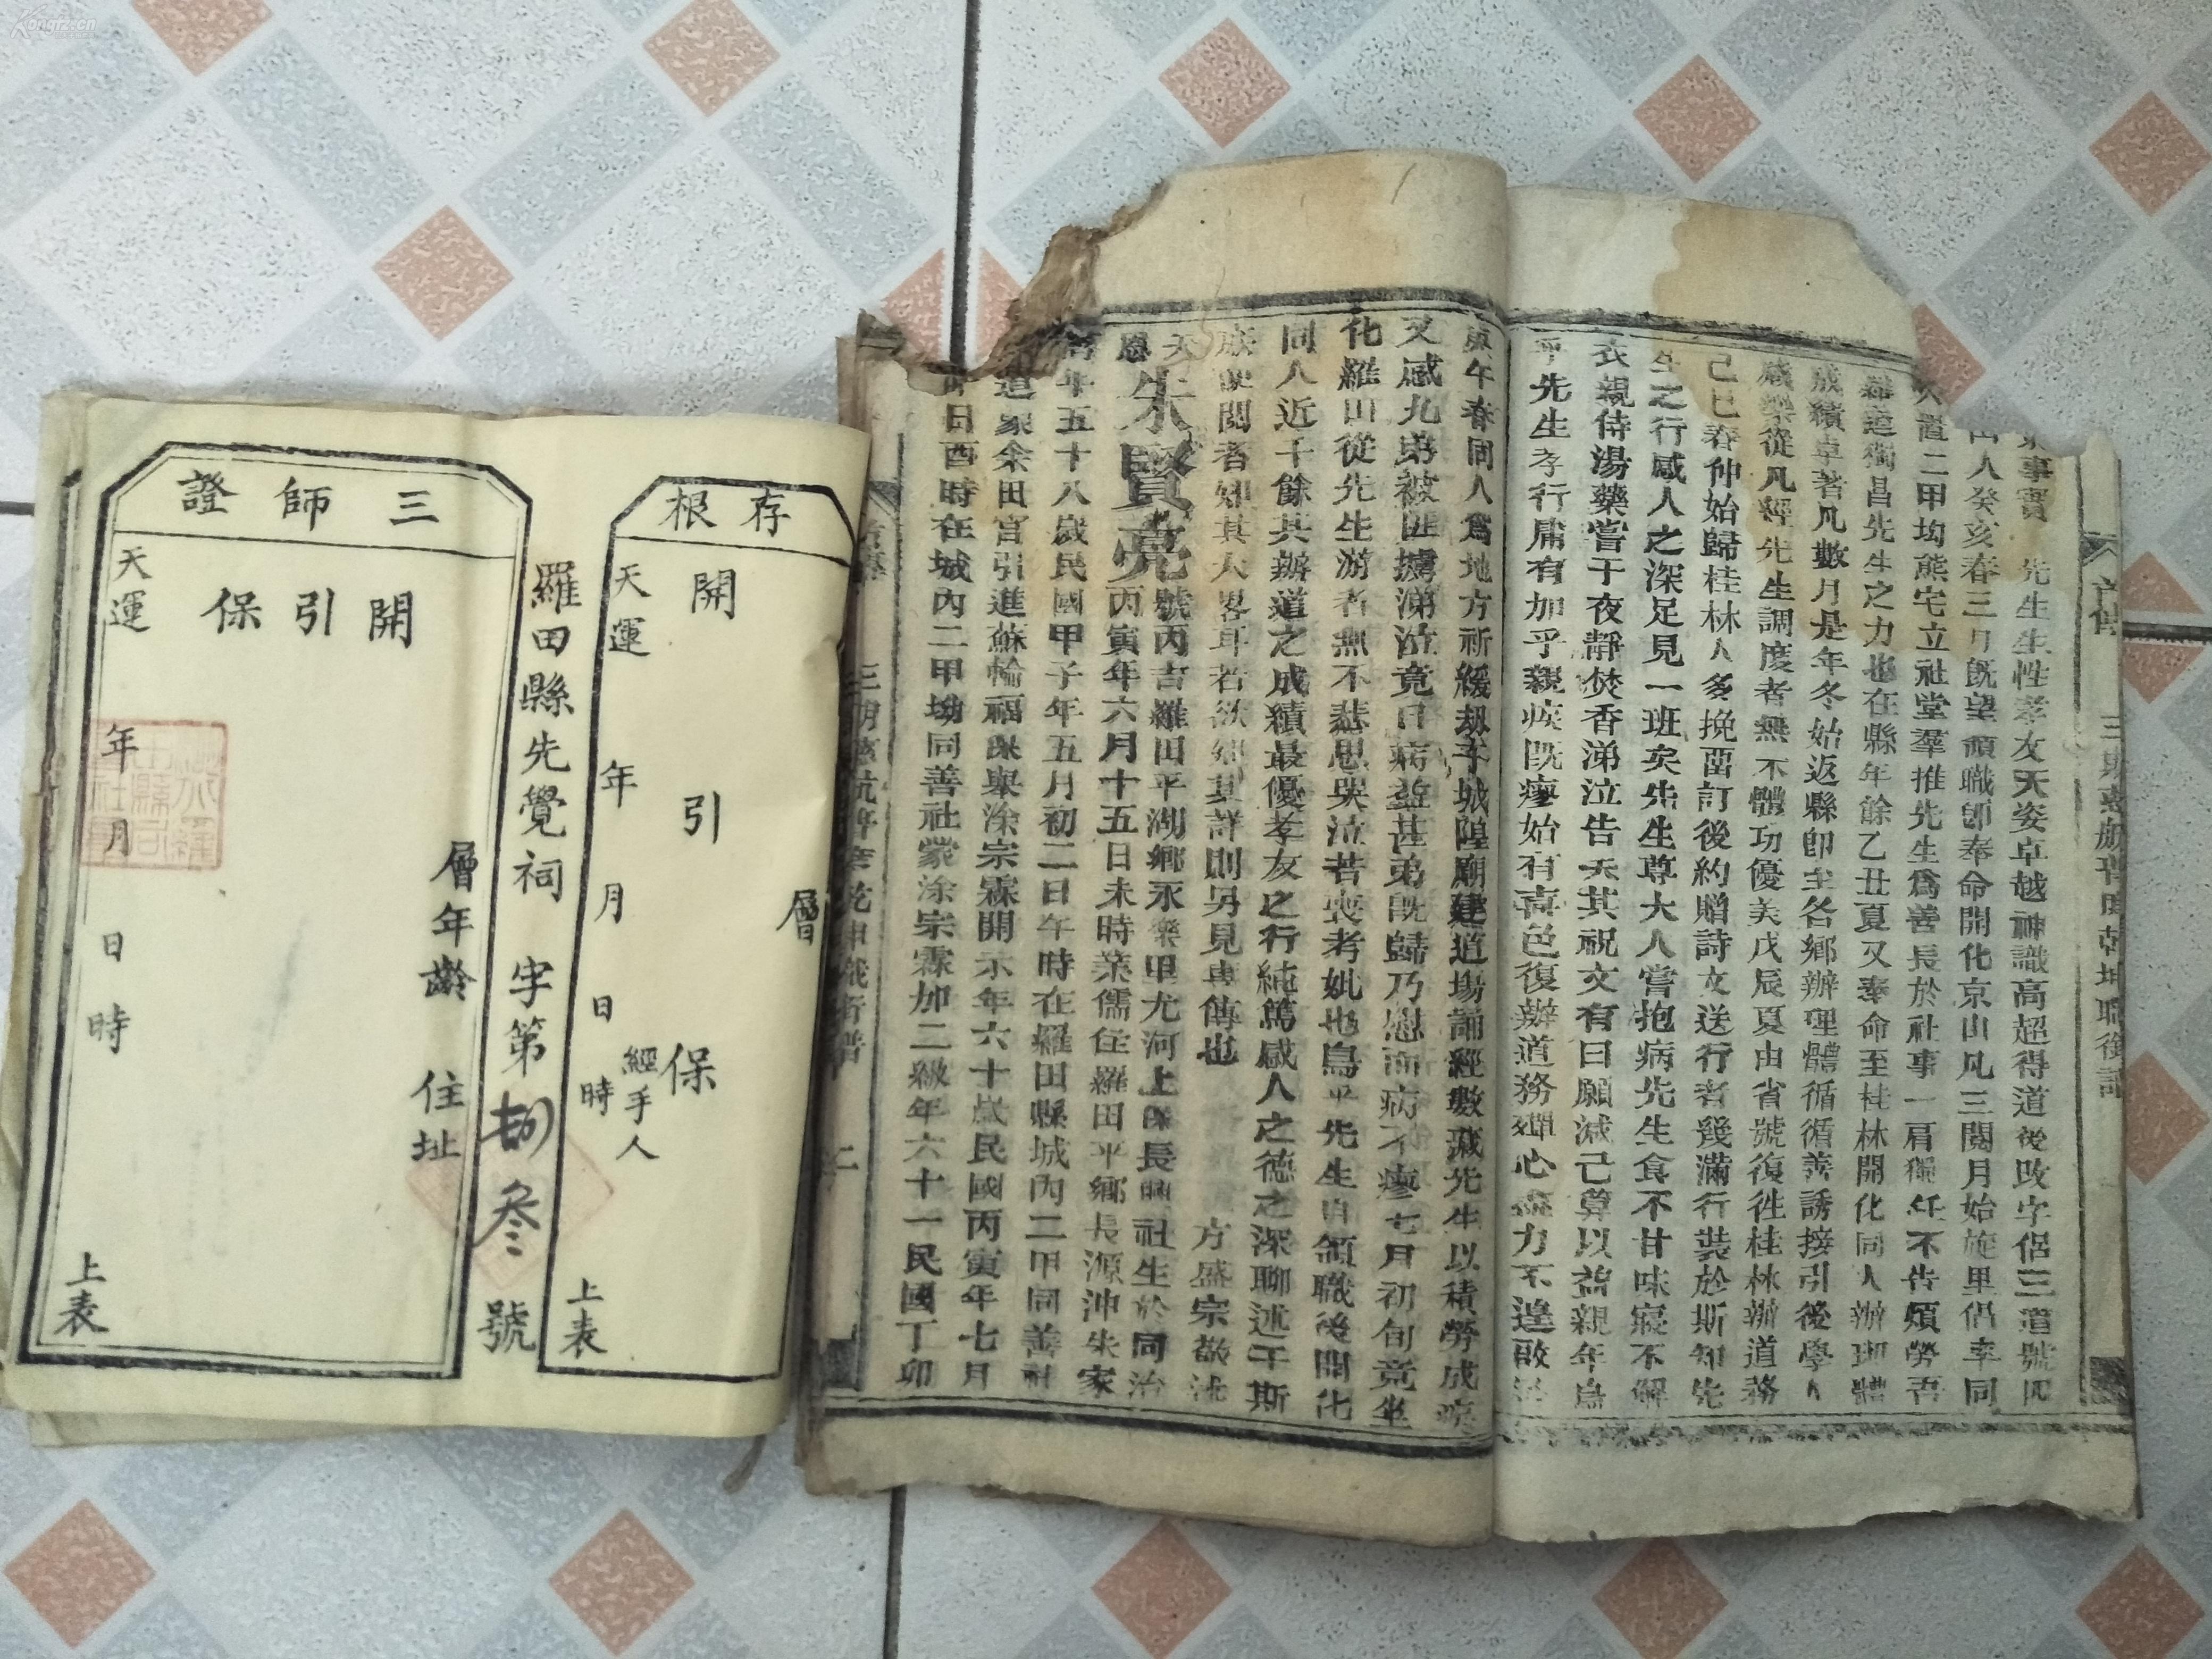 Kongfz.cn
三師證
開引保
天運
年月
日時
上表
層年齡
住址
羅田縣先覺祠
字第
叁
號
存根
開引保
層
天運
年月
日時
經手人
上表
事實 先生生性孝友天姿卓越神識高超得道後改字侶三道號四
山人癸亥春三月既望領職卽奉命開化京山凡三閱月始旋里侶率同
置二甲坳熊宅立社堂羣推先生爲善長於社事一肩獨任不告煩勞吾
羅道獨昌先生之力也在縣年餘乙丑夏又奉命至桂林開化同人辦理體
成績卓著凡數月是年冬始返縣卽至各鄉辦理體循循善誘接引後學人
咸樂從凡經先生調度者無不體功優美戊辰夏由省號復往桂林辦道務
己巳春仲始歸桂林人多挽留訂後約贈詩文送行者幾滿行裝於斯知先
生之行感人之深足見一班矣先生尊大人嘗抱病先生食不甘味寢不解
衣親侍湯藥嘗于夜靜焚香涕泣告天其祝文有曰願減己算以益親年烏
乎先生孝行庸有加乎親疾既瘳始有喜色復辦道務殫心盡力不遑啟
庚午春同人爲地方祈緩劫于城隍廟建道場誦經數藏先生以積勞成
又感九弟被匪擄涕泣竟日病益甚弟既歸乃慰而病不瘳七月初旬竟坐
化羅田從先生游者無不悲思哭泣若喪考妣也烏乎先生自領職後開化
同人近千餘其辦道之成績最優孝友之行純篤感人之德之深聊述于斯
閱者知其大畧耳若欲知其詳則另見專傳也
方盛宗敬述
天恩朱賢亮號丙吉羅田平湖鄉永樂里尤河上保長興社生於同治
丙寅年六月十五日未時業儒住羅田平鄉長源沖朱家
年五十八歲民國甲子年五月初二日午時在羅田縣城內二甲同善社
道家余田宮引進蘇綸福保舉涂宗霖開示年六十歲民國丙寅年七月
日酉時在城內二甲坳同善社蒙涂宗霖加二級年六十一民國丁卯